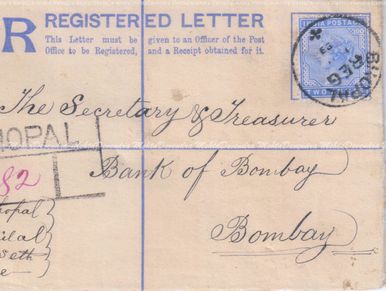 R REGISTERED LETTER
This Letter must be given to an Officer of the Post
Office to be Registered, and a Receipt obtained for it.
INDIA POSTAGE
TWO
BHOPAL
REG
The Secretary & Treasurer
HOPAL
82
Bank of Bombay
opal
Bombay